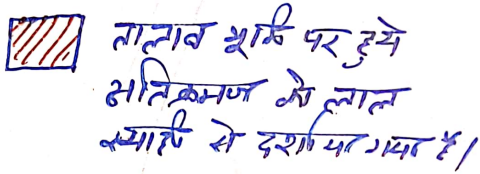 तालाब भूमि पर हुये
अतिक्रमण को लाल
स्याही से दर्शाया गया है।